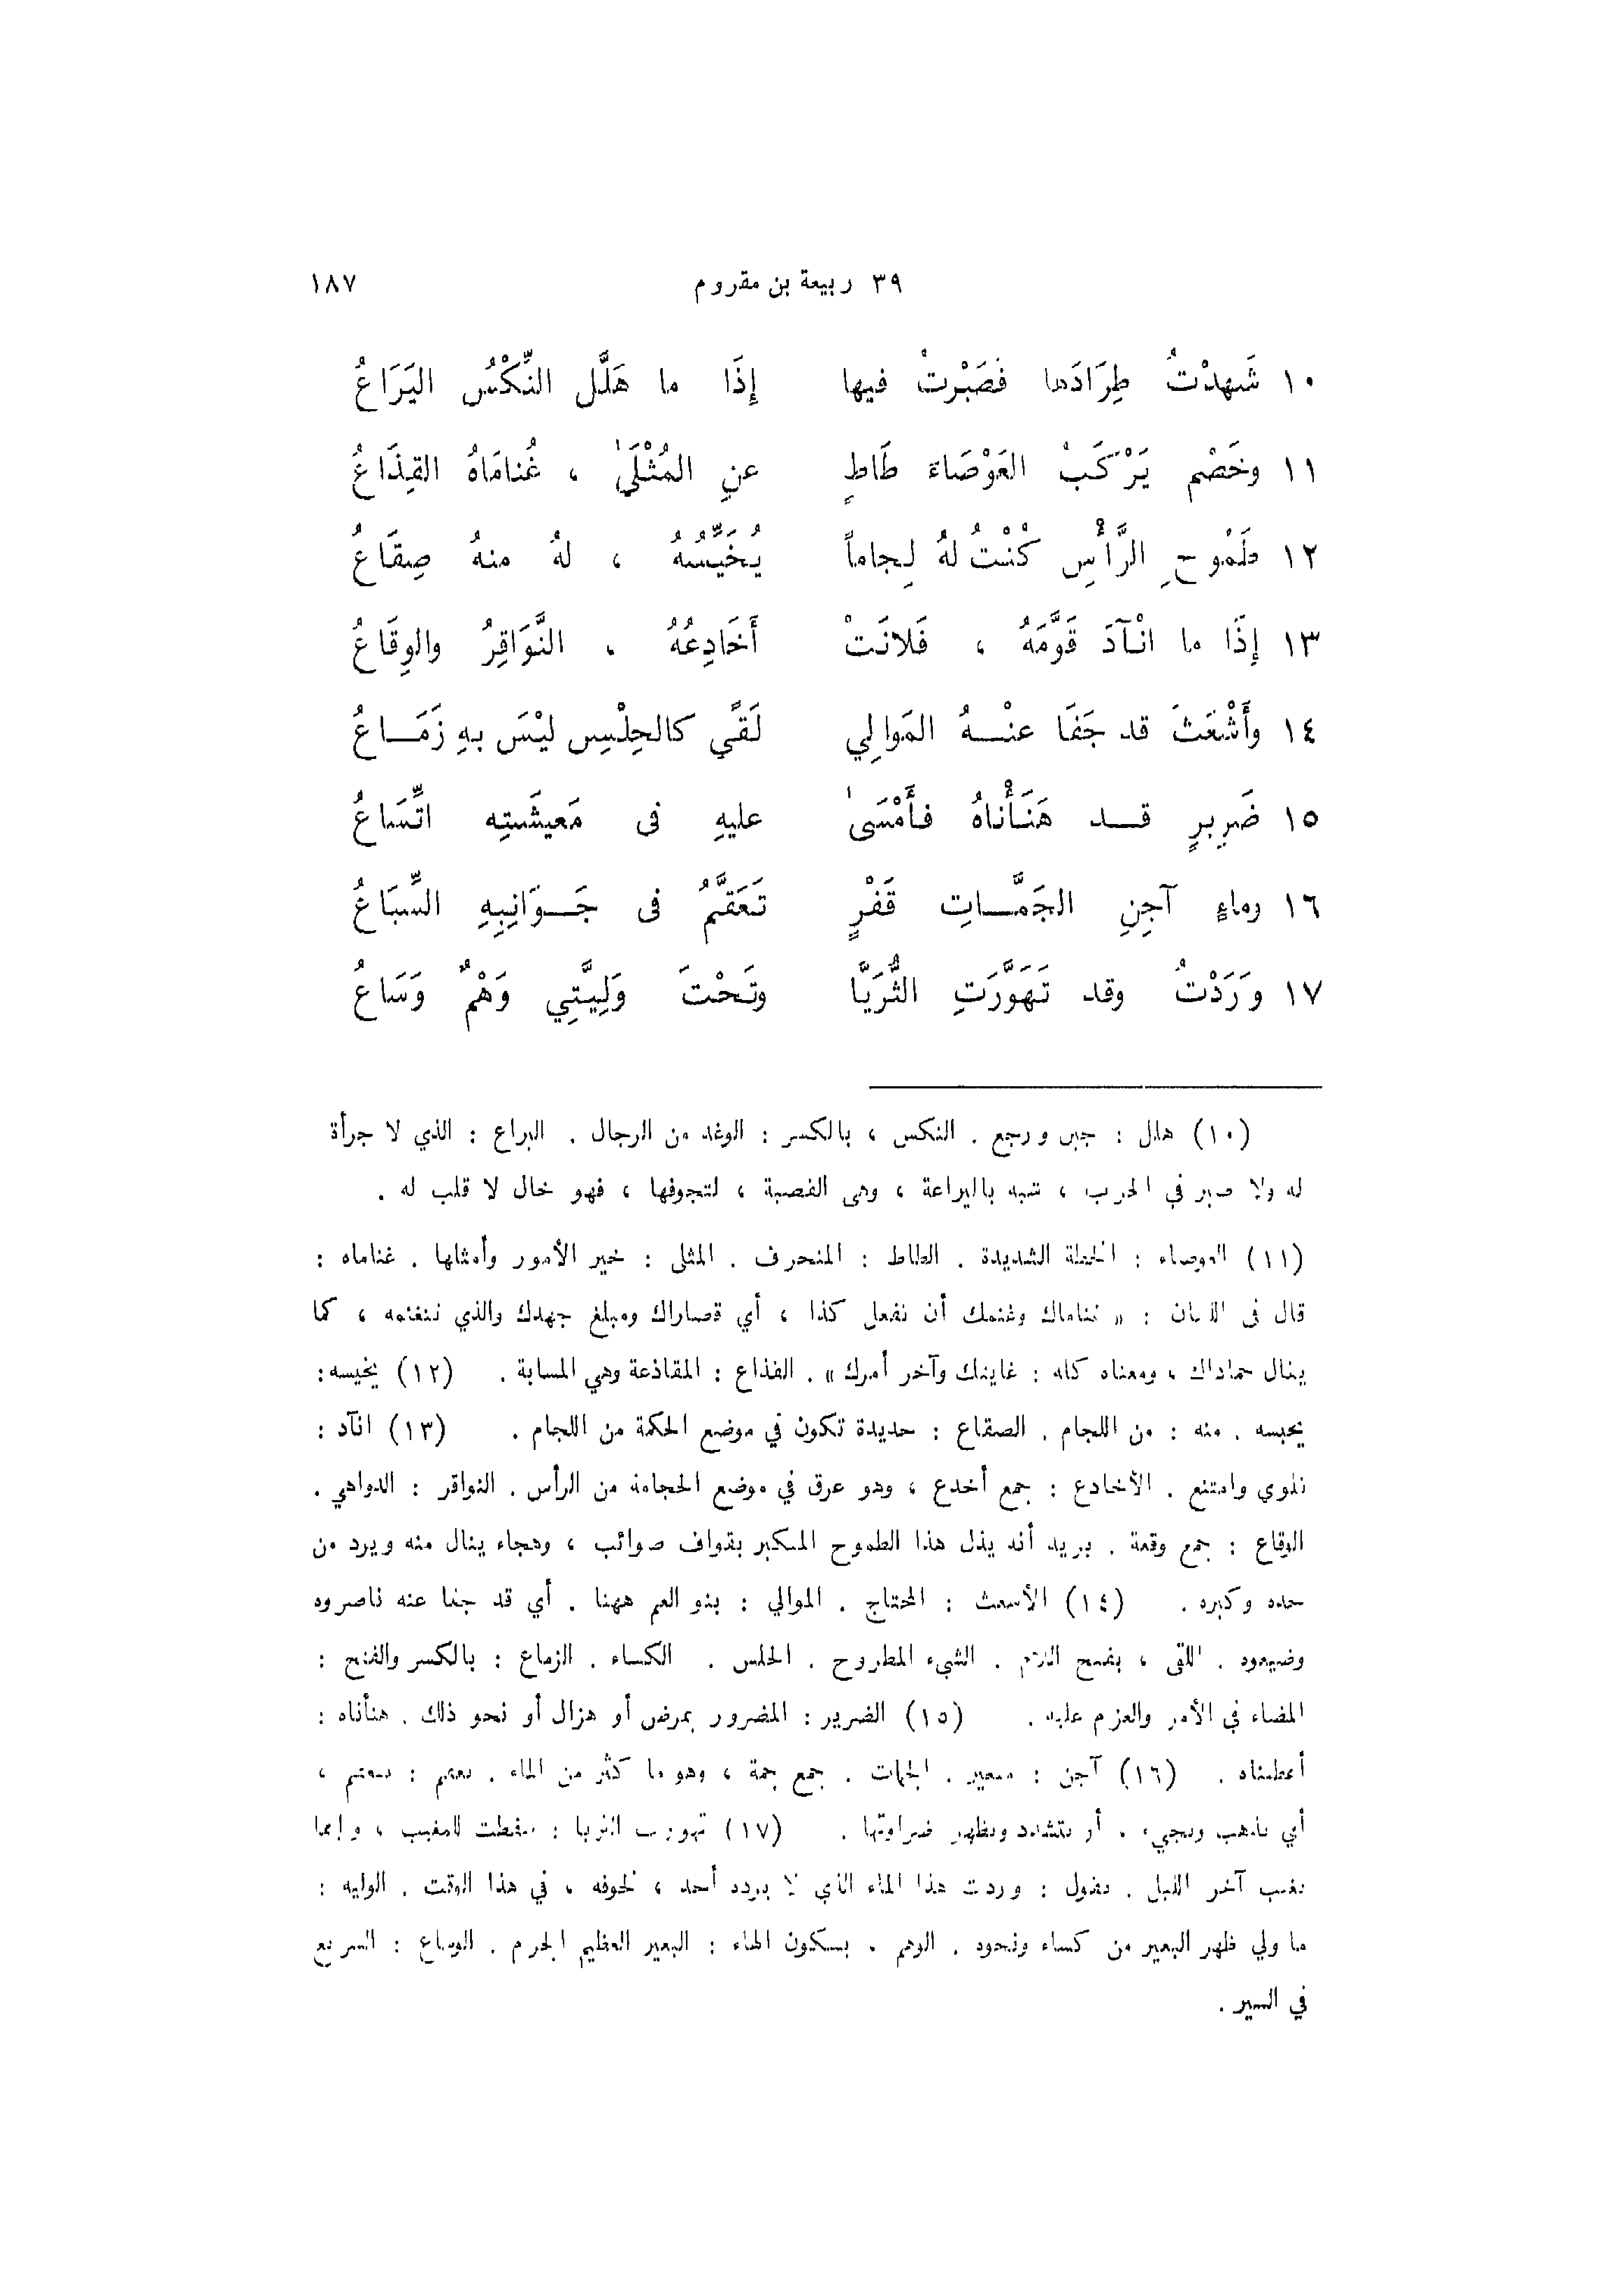 ٣٩ ربيعة بن مقروم ١٨٧
١٠ شَهِدْتُ طِرَادَها فَصَبْرتُ فيها إِذَا ما هَلَّل النِّكْسُ اليَرَاعُ
١١ وخَصْمٍ يَرْكَبُ العَوْصَاءَ طَاطٍ عنِ المُثْلَىٰ ، غُنامَاهُ القِذَاعُ
١٢ طَمُوحِ الرَّأْسِ كُنْتُ لهُ لِجاماً يُخَيِّسُهُ ، لهُ منهُ صِقَاعُ
١٣ إِذَا ما انْآدَ قَوَّمَهُ ، فَلانَتْ أَخَادِعُهُ ، النَّوَاقِرُ والوِقَاعُ
١٤ وأَشْعَثَ قد جَفَا عنْهُ المَوالِي لَقًى كالحِلْسِ ليْسَ بهِ زَمَاعُ
١٥ ضَرِيرٍ قد هَنَأْناهُ فأَمْسَىٰ عليهِ فى مَعيشَتِه اتِّسَاعُ
١٦ وماءٍ آجِنِ الجَمَّاتِ قَفْرٍ تَعَقَّمُ فى جَوَانِبِهِ السِّبَاعُ
١٧ وَرَدْتُ وقد تَهَوَّرَتِ الثُّرَيَّا وتَحْتَ وَلِيَّتِي وَهْمٌ وَسَاعُ
(١٠) هلل : جبن ورجع . النكس ، بالكسر : الوغد من الرجال . اليراع : الذي لا جرأة
له ولا صبر في الحرب ، شبه باليراعة ، وهى القصبة ، لتجوفها ، فهو خال لا قلب له .
(١١) العوصاء : الخطة الشديدة . الطاط : المنحرف . المثلى : خير الأمور وأمثلها . غناماه :
قال فى اللسان : « غناماك وغنمك أن تفعل كذا ، أي قصاراك ومبلغ جهدك والذي تتغنمه ، كما
يقال حماداك ، ومعناه كله : غايتك وآخر أمرك » . القذاع : المقاذعة وهي المسابة . (١٢) يخيسه :
يحبسه . منه : من اللجام . الصقاع : حديدة تكون في موضع الحكمة من اللجام . (١٣) انآد :
تلوي وامتنع . الأخادع : جمع أخدع ، وهو عرق في موضع الحجامة من الرأس . النواقر : الدواهي .
الوقاع : جمع وقعة . يريد أنه يذل هذا الطموح المتكبر بقواف صوائب ، وهجاء ينال منه ويرد من
حده وكبره . (١٤) الأشعث : المحتاج . الموالي : بنو العم ههنا . أي قد جفا عنه ناصروه
وضيعوه . اللقى ، بفتح اللام . الشيء المطروح . الحلس . الكساء . الزماع : بالكسر والفتح :
المضاء في الأمر والعزم عليه . (١٥) الضرير : المضرور بمرض أو هزال أو نحو ذلك . هنأناه :
أعطيناه . (١٦) آجن : متغير . الجمات . جمع جمة ، وهو ما كثر من الماء . تعقم : تعتقم ،
أي تذهب وتجيء . أو تتشدد وتظهر ضراوتها . (١٧) تهورت الثريا : سقطت للمغيب ، وإنما
تغيب آخر الليل . يقول : وردت هذا الماء الذي لا يرده أحد ، لخوفه ، في هذا الوقت . الوليه :
ما ولي ظهر البعير من كساء ونحوه . الوهم . بسكون الهاء : البعير العظيم الجرم . الوساع : السريع
في السير .